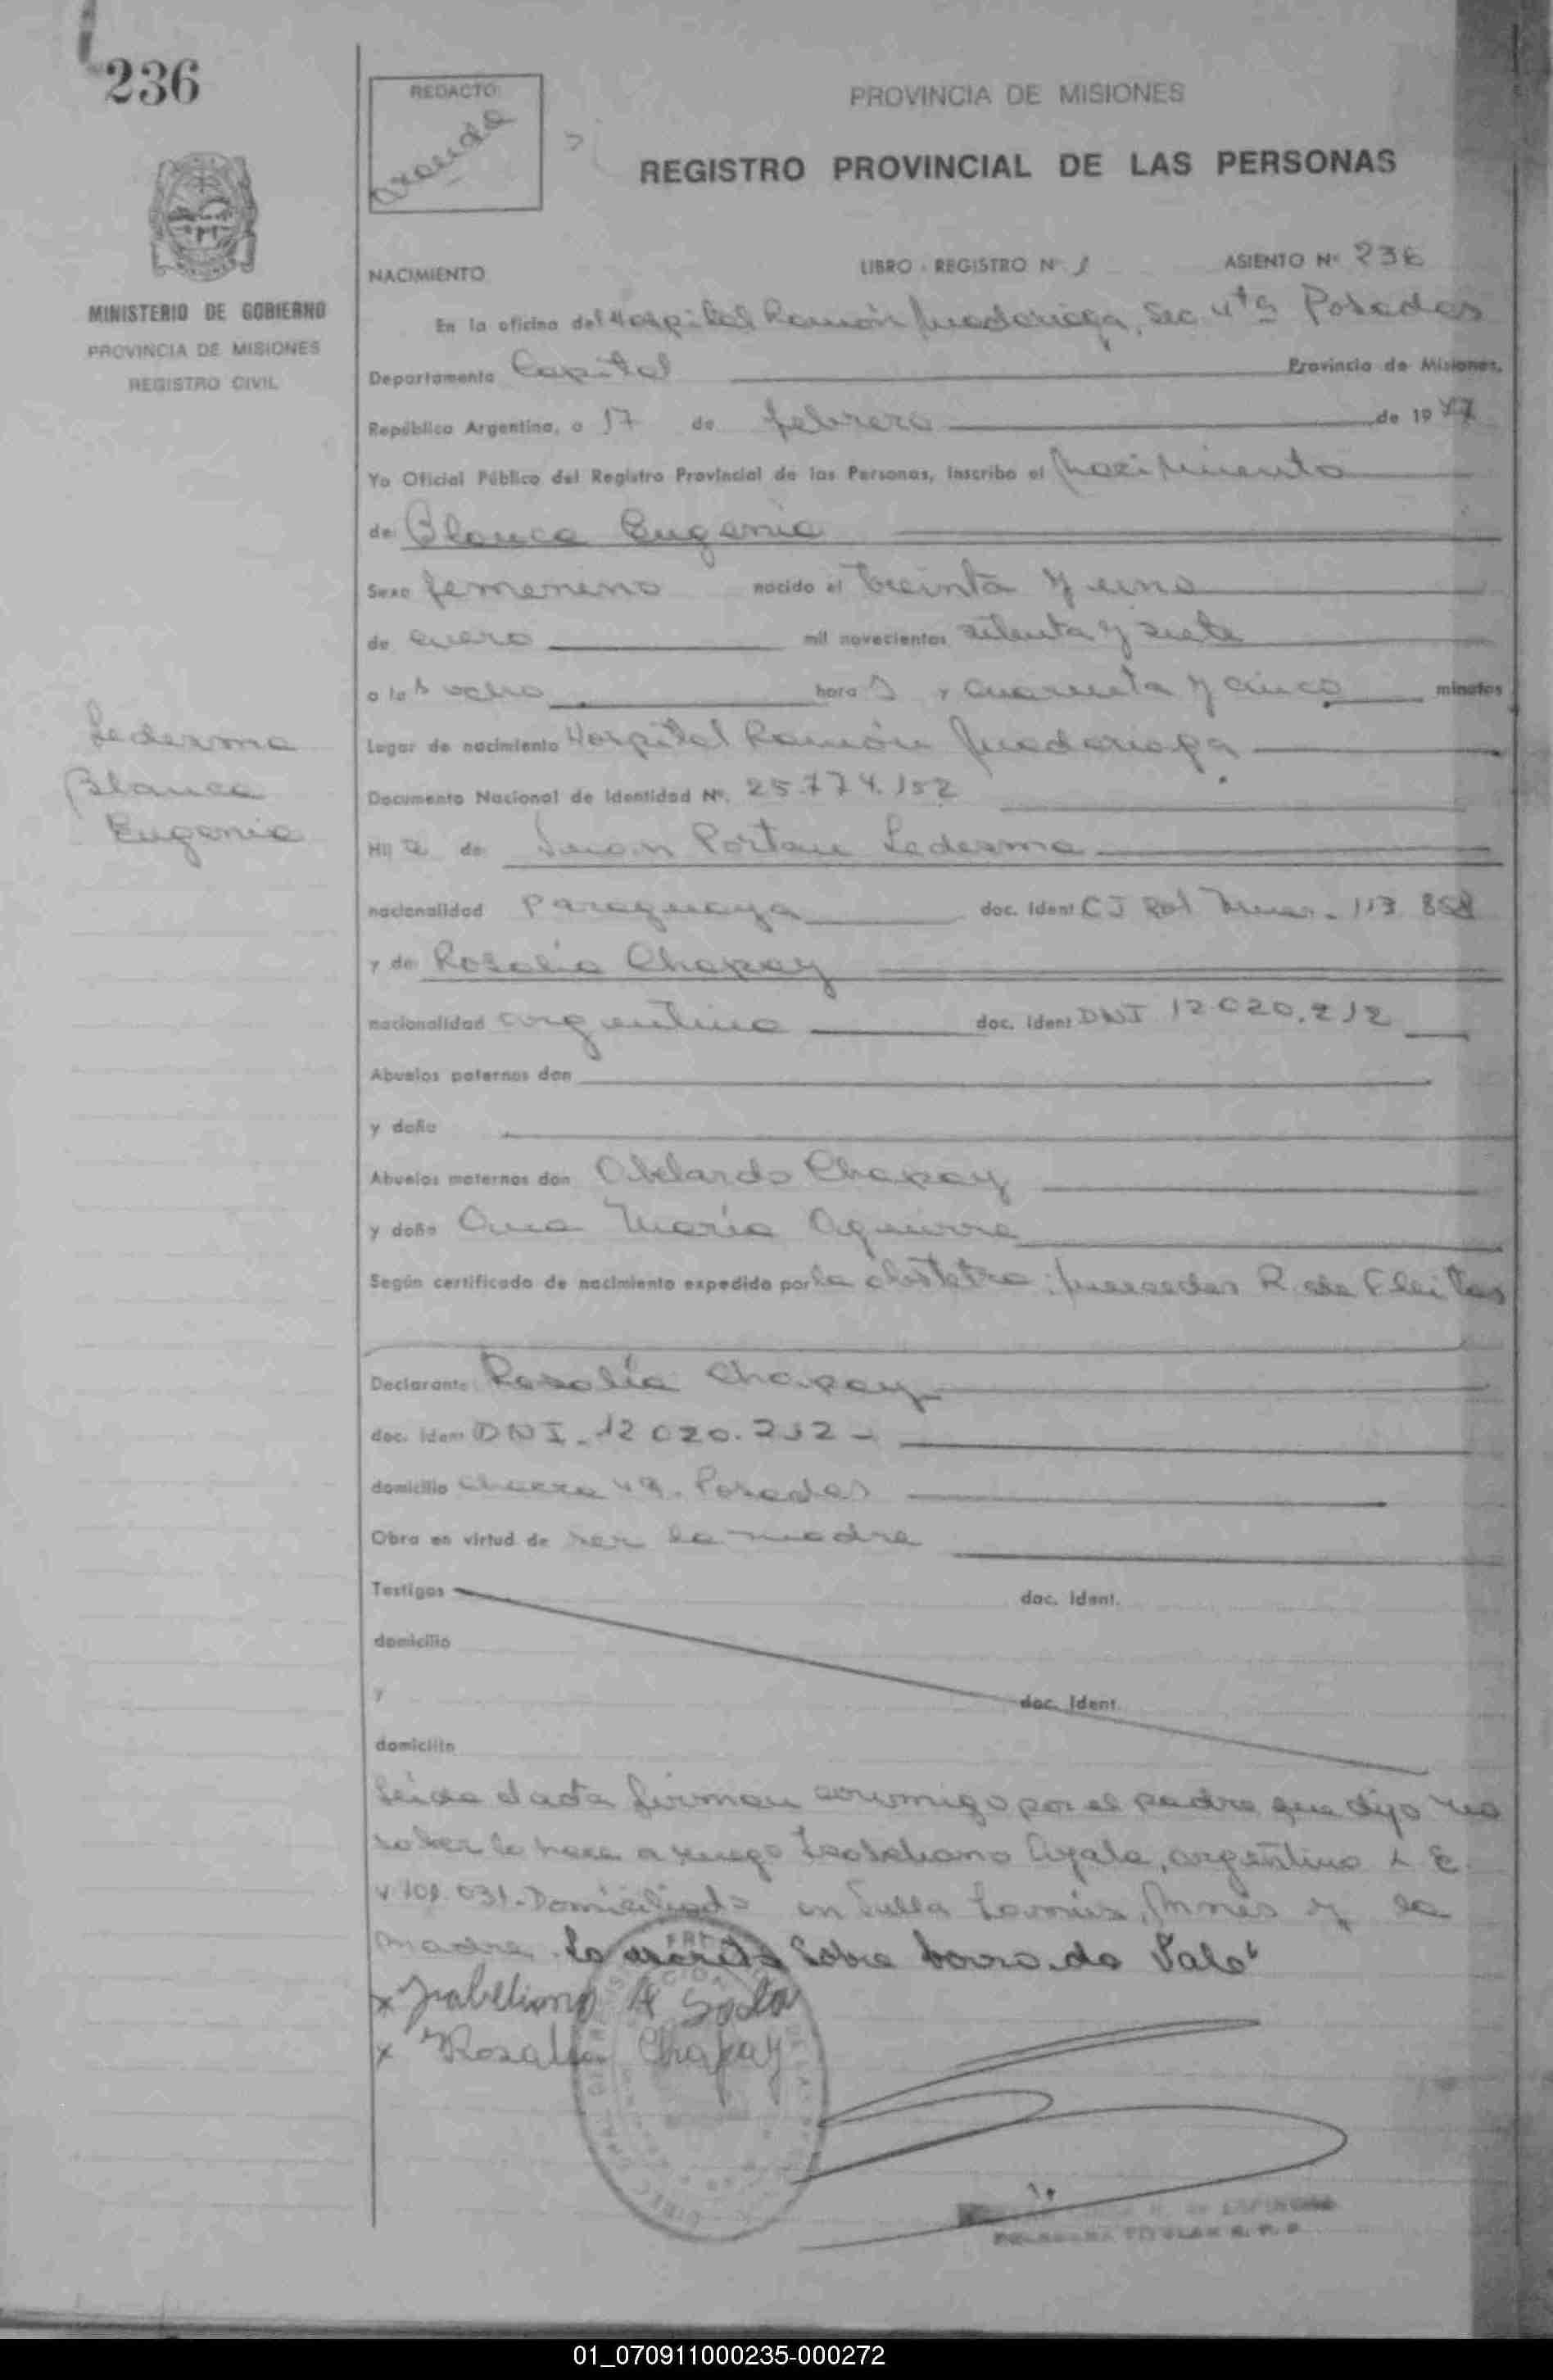 236
REDACTO
Aranda
PROVINCIA DE MISIONES
REGISTRO PROVINCIAL DE LAS PERSONAS
MINISTERIO DE GOBIERNO
PROVINCIA DE MISIONES
REGISTRO CIVIL
NACIMIENTO LIBRO - REGISTRO Nº 1 ASIENTO Nº 236
En la oficina del Hospital Ramón Madariaga, Sec 4ta Posadas
Departamento Capital Provincia de Misiones.
República Argentina, a 17 de febrero de 1977
Yo Oficial Público del Registro Provincial de las Personas, inscribo el nacimiento
de Blanca Eugenia
Sexo femenino nacido el treinta y uno
de enero mil novecientos setenta y siete
a las ocho hora s y cuarenta y cinco minutos
Ledesma
Blanca
Eugenia
Lugar de nacimiento Hospital Ramón Madariaga
Documento Nacional de Identidad Nº. 25.774.152
Hij a de Juan Ledesma
nacionalidad Paraguaya doc. Ident CI Pol 113.858
y de Rosalía Chapay
nacionalidad argentina doc. Ident DNI 12.020.212
Abuelos paternos don
y doña
Abuelos maternos don Abelardo Chapay
y doña Ana María Aguirre
Según certificado de nacimiento expedido por la obstetra: Mercedes R. de Fleitas
Declarante Rosalía Chapay
doc. Ident DNI. 12.020.212 -
domicilio Chacra 49. Posadas
Obra en virtud de ser la madre
Testigos doc. Ident.
domicilio
y doc. Ident.
domicilio
Leída el acta firman conmigo por el padre que dijo no
saber lo hace a ruego Ayala, argentino L E
domiciliado en Villa Lanús, Mnes y la
madre. Lo escrito sobre borrado Vale
x A
x Rosalía Chapay
TITULAR R. P. P.
01_070911000235-000272